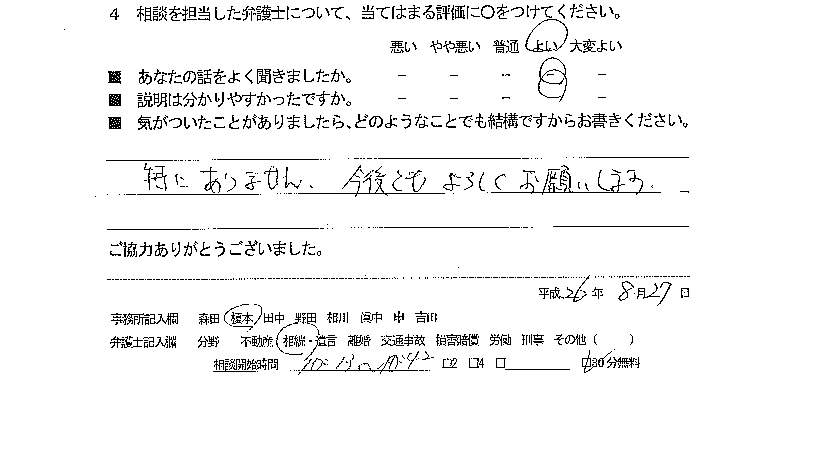 4 相談を担当した弁護士について、当てはまる評価に○をつけてください。
悪い やや悪い 普通 よい 大変よい
あなたの話をよく聞きましたか。 － － － － －
説明は分かりやすかったですか。 － － － － －
気がついたことがありましたら、どのようなことでも結構ですからお書きください。
特にありません。今後とも よろしくお願いします。
ご協力ありがとうございました。
平成26年 8月27日
事務所記入欄 森田 榎本 田中 野田 相川 中 吉田
弁護士記入欄 分野 不動産 相続・遺言 離婚 交通事故 損害賠償 労働 刑事 その他（ ）
相談開始時間 10:13～10:42 □2 □4 □ □30分無料